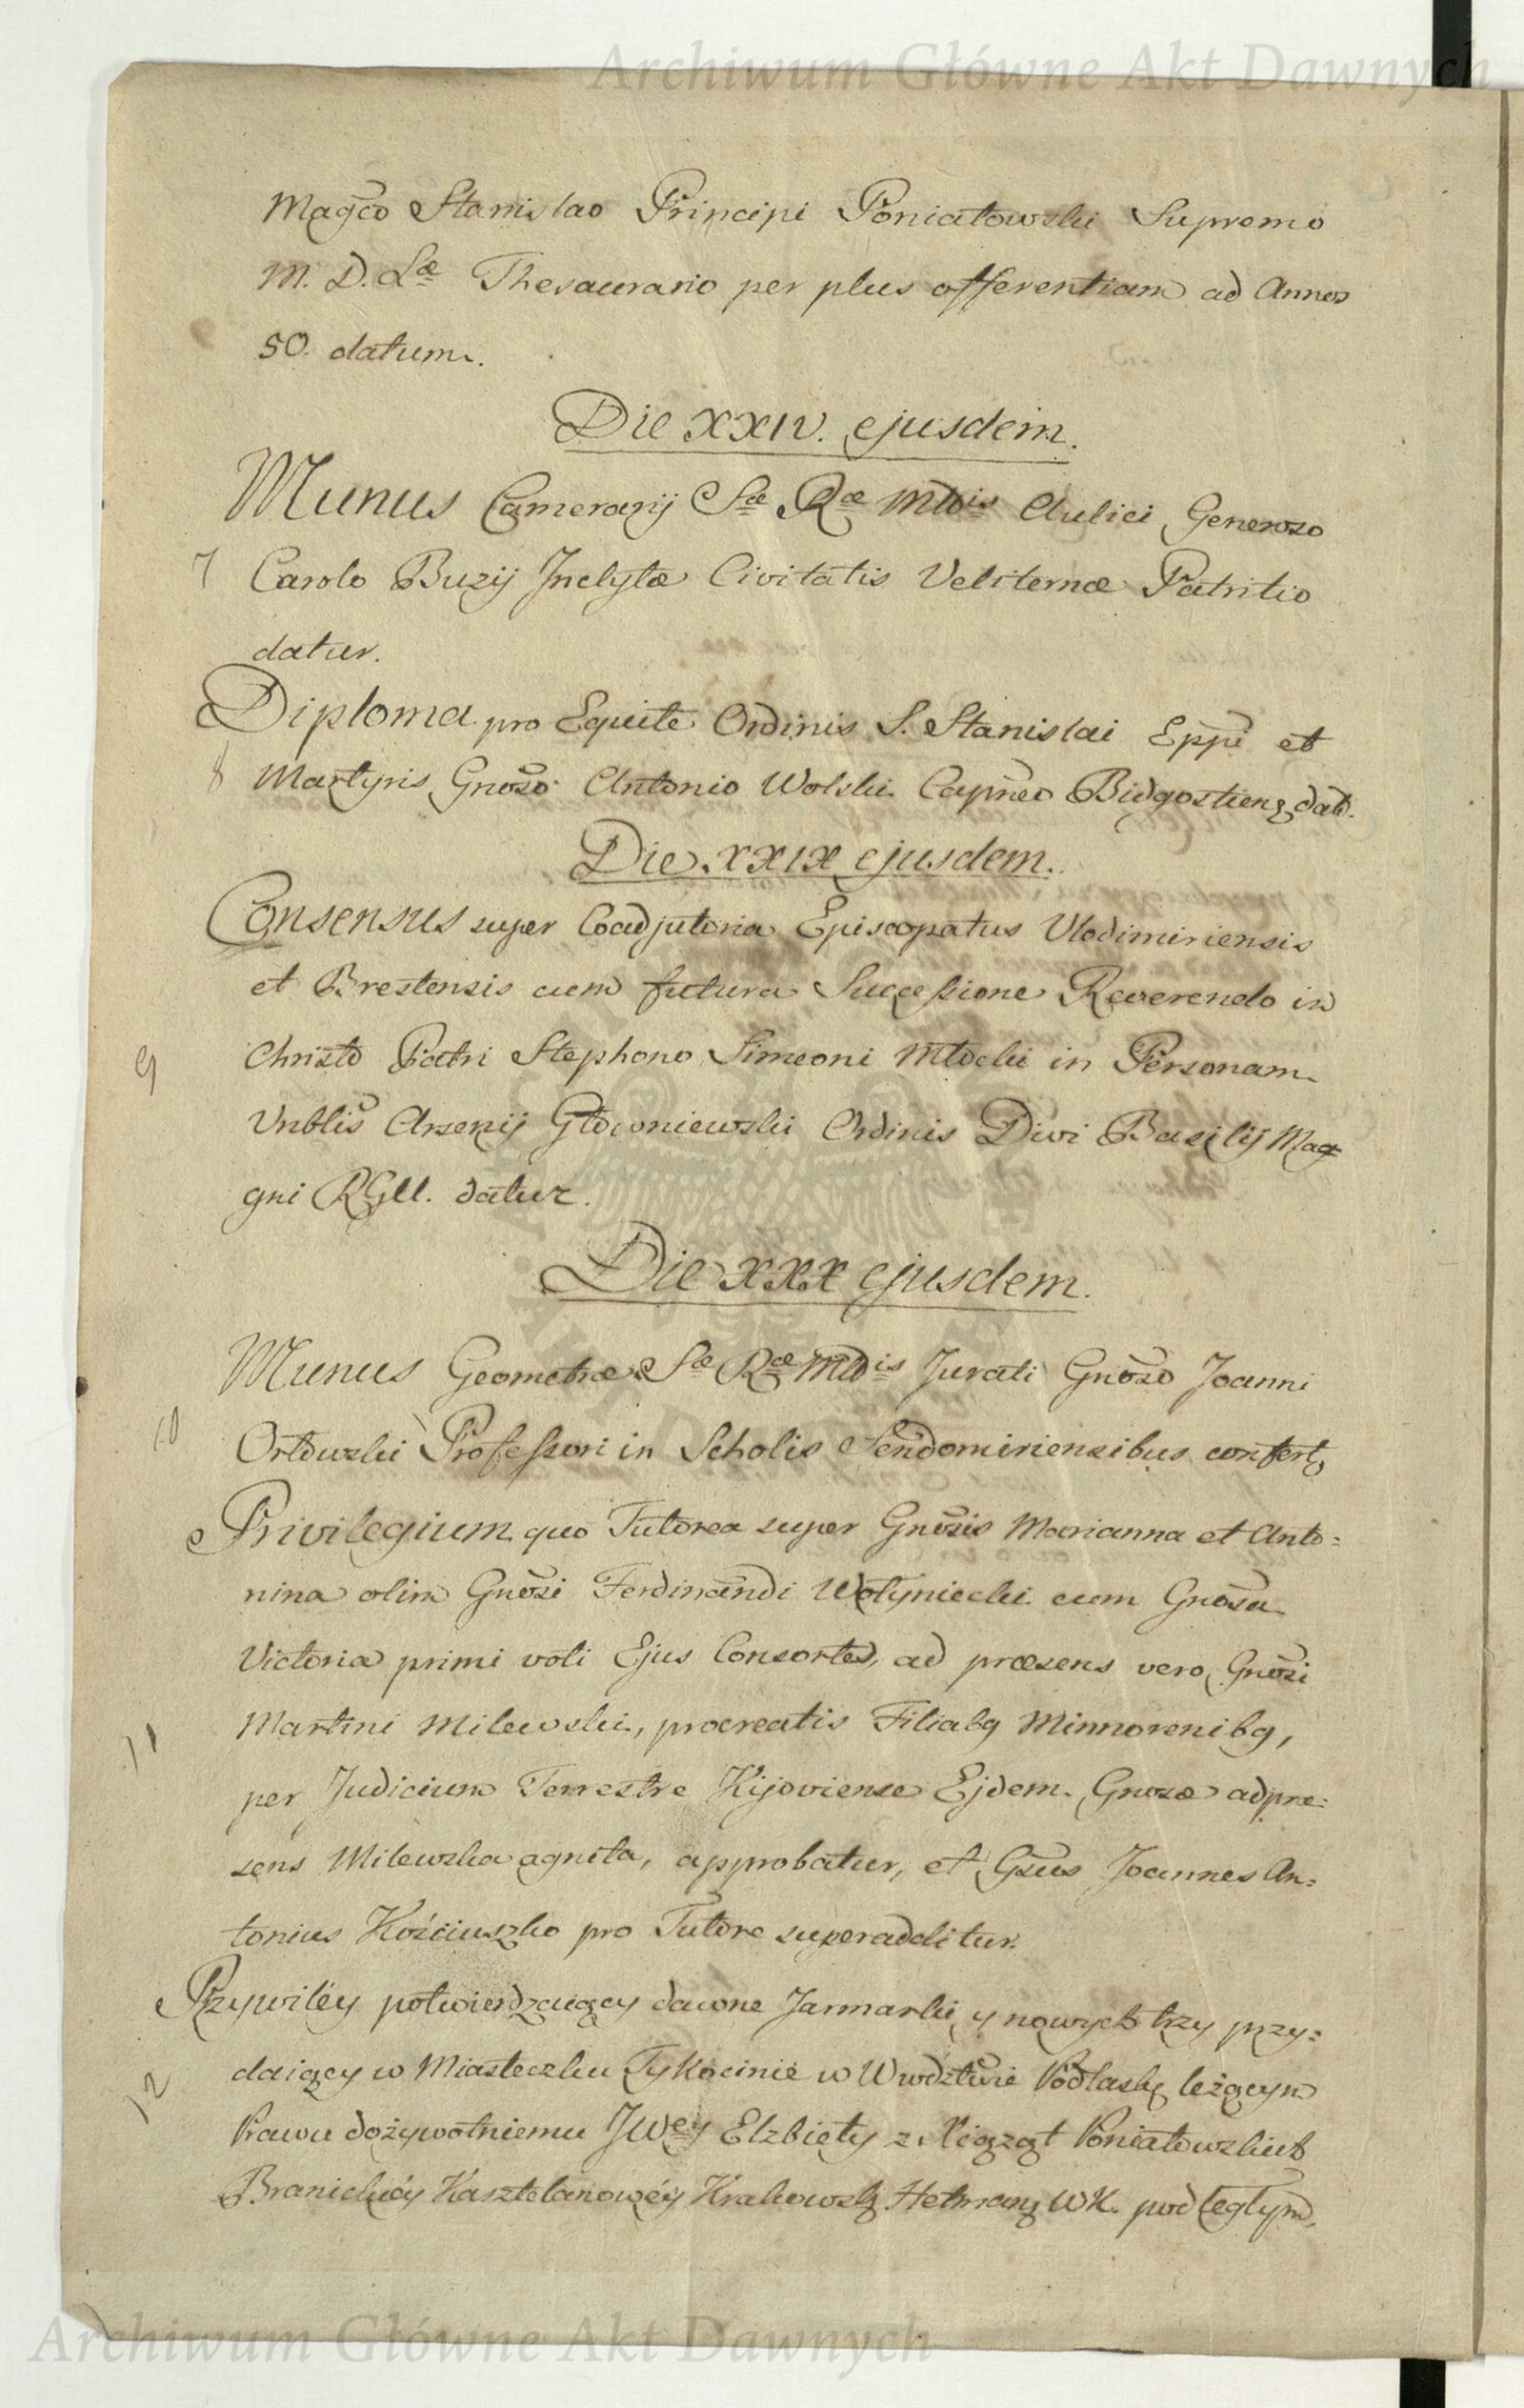 Archiwum Główne Akt Dawnych
Magco Stanislao Principi Poniatowski Supremo
M. D. Læ Thesaurario per plus offerentiam ad Annos
50. datum.
Die XXIV. ejusdem.
Munus Camerarij Sæ Ræ Mttis Aulici Generoso
7 Carolo Buzij Inclytæ Civitatis Veliternæ Patritio
datur.
Diploma pro Equite Ordinis S. Stanislai Eppi et
8 Martyris Gnoso Antonio Wolski Capneo Bidgostieng dat.
Die XXIX ejusdem.
Consensus super Coadjutoria Episcopatus Vlodimiriensis
et Brestensis cum futura Successione Reverendo in
9 Christo Patri Stephono Simeoni Młocki in Personam
Vnblis Arsenij Głowniewski Ordinis Divi Basilij Mag
gni RGll. datur.
Die XXX ejusdem.
Munus Geometræ Sæ Ræ Mttis Jurati Gnoso Joanni
10 Orłowski Professori in Scholis Sendomiriensibus confert,
Privilegium quo Tutorea super Gnosis Marianna et Anto=
nina olim Gnosi Ferdinandi Wołyniecki cum Gnosa
Victoria primi voti Ejus Consorte, ad præsens vero Gnosi
11 Martini Milewski, procreatis Filiabq Minnorenibq,
per Judicium Terrestre Kijoviense Ejdem Gnosæ adpre=
sens Milewska agnita, approbatur, et Gsus Joannes An=
tonius Kościuszko pro Tutore superadditur.
Przywiléy potwierdzaiący dawne Jarmarki y nowych trzy przy=
12 daiący w Miasteczku Tykocinie w Wwdztwie Podlaskę leżącym
Prawu dożywotniemu JWey Elzbiety z Xiąząt Poniatowskich
Branickiéy Kasztelanowéy Krakowskę Hetmanę WK. podległym,
Archiwum Główne Akt Dawnych